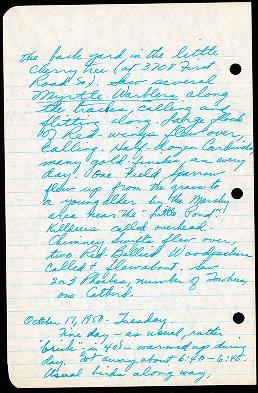 the back yard in the little
cherry tree (at 3708 First
Road So). Saw several
Myrtle Warblers along
the tracks, calling and
flitting along. Large flock
of Red-wings flew over,
calling. Half-dozen Cardinals,
many gold-finches, as every
day. One Field Sparrow
flew up from the grass to
a young elder by the Marshy
area near the "Little Pond"
Killdeers called overhead.
Chimney Swifts flew over,
two Red-Bellied Woodpeckers
called & flew about. Saw
2 or 3 Phoebes, number of Towhees,
one Catbird.
October 17, 1950 - Tuesday.
Fine day - as usual, rather
"brisk" - in 40s - warmed up during
day. Got away about 6:40 - 6:45.
Usual birds along way,